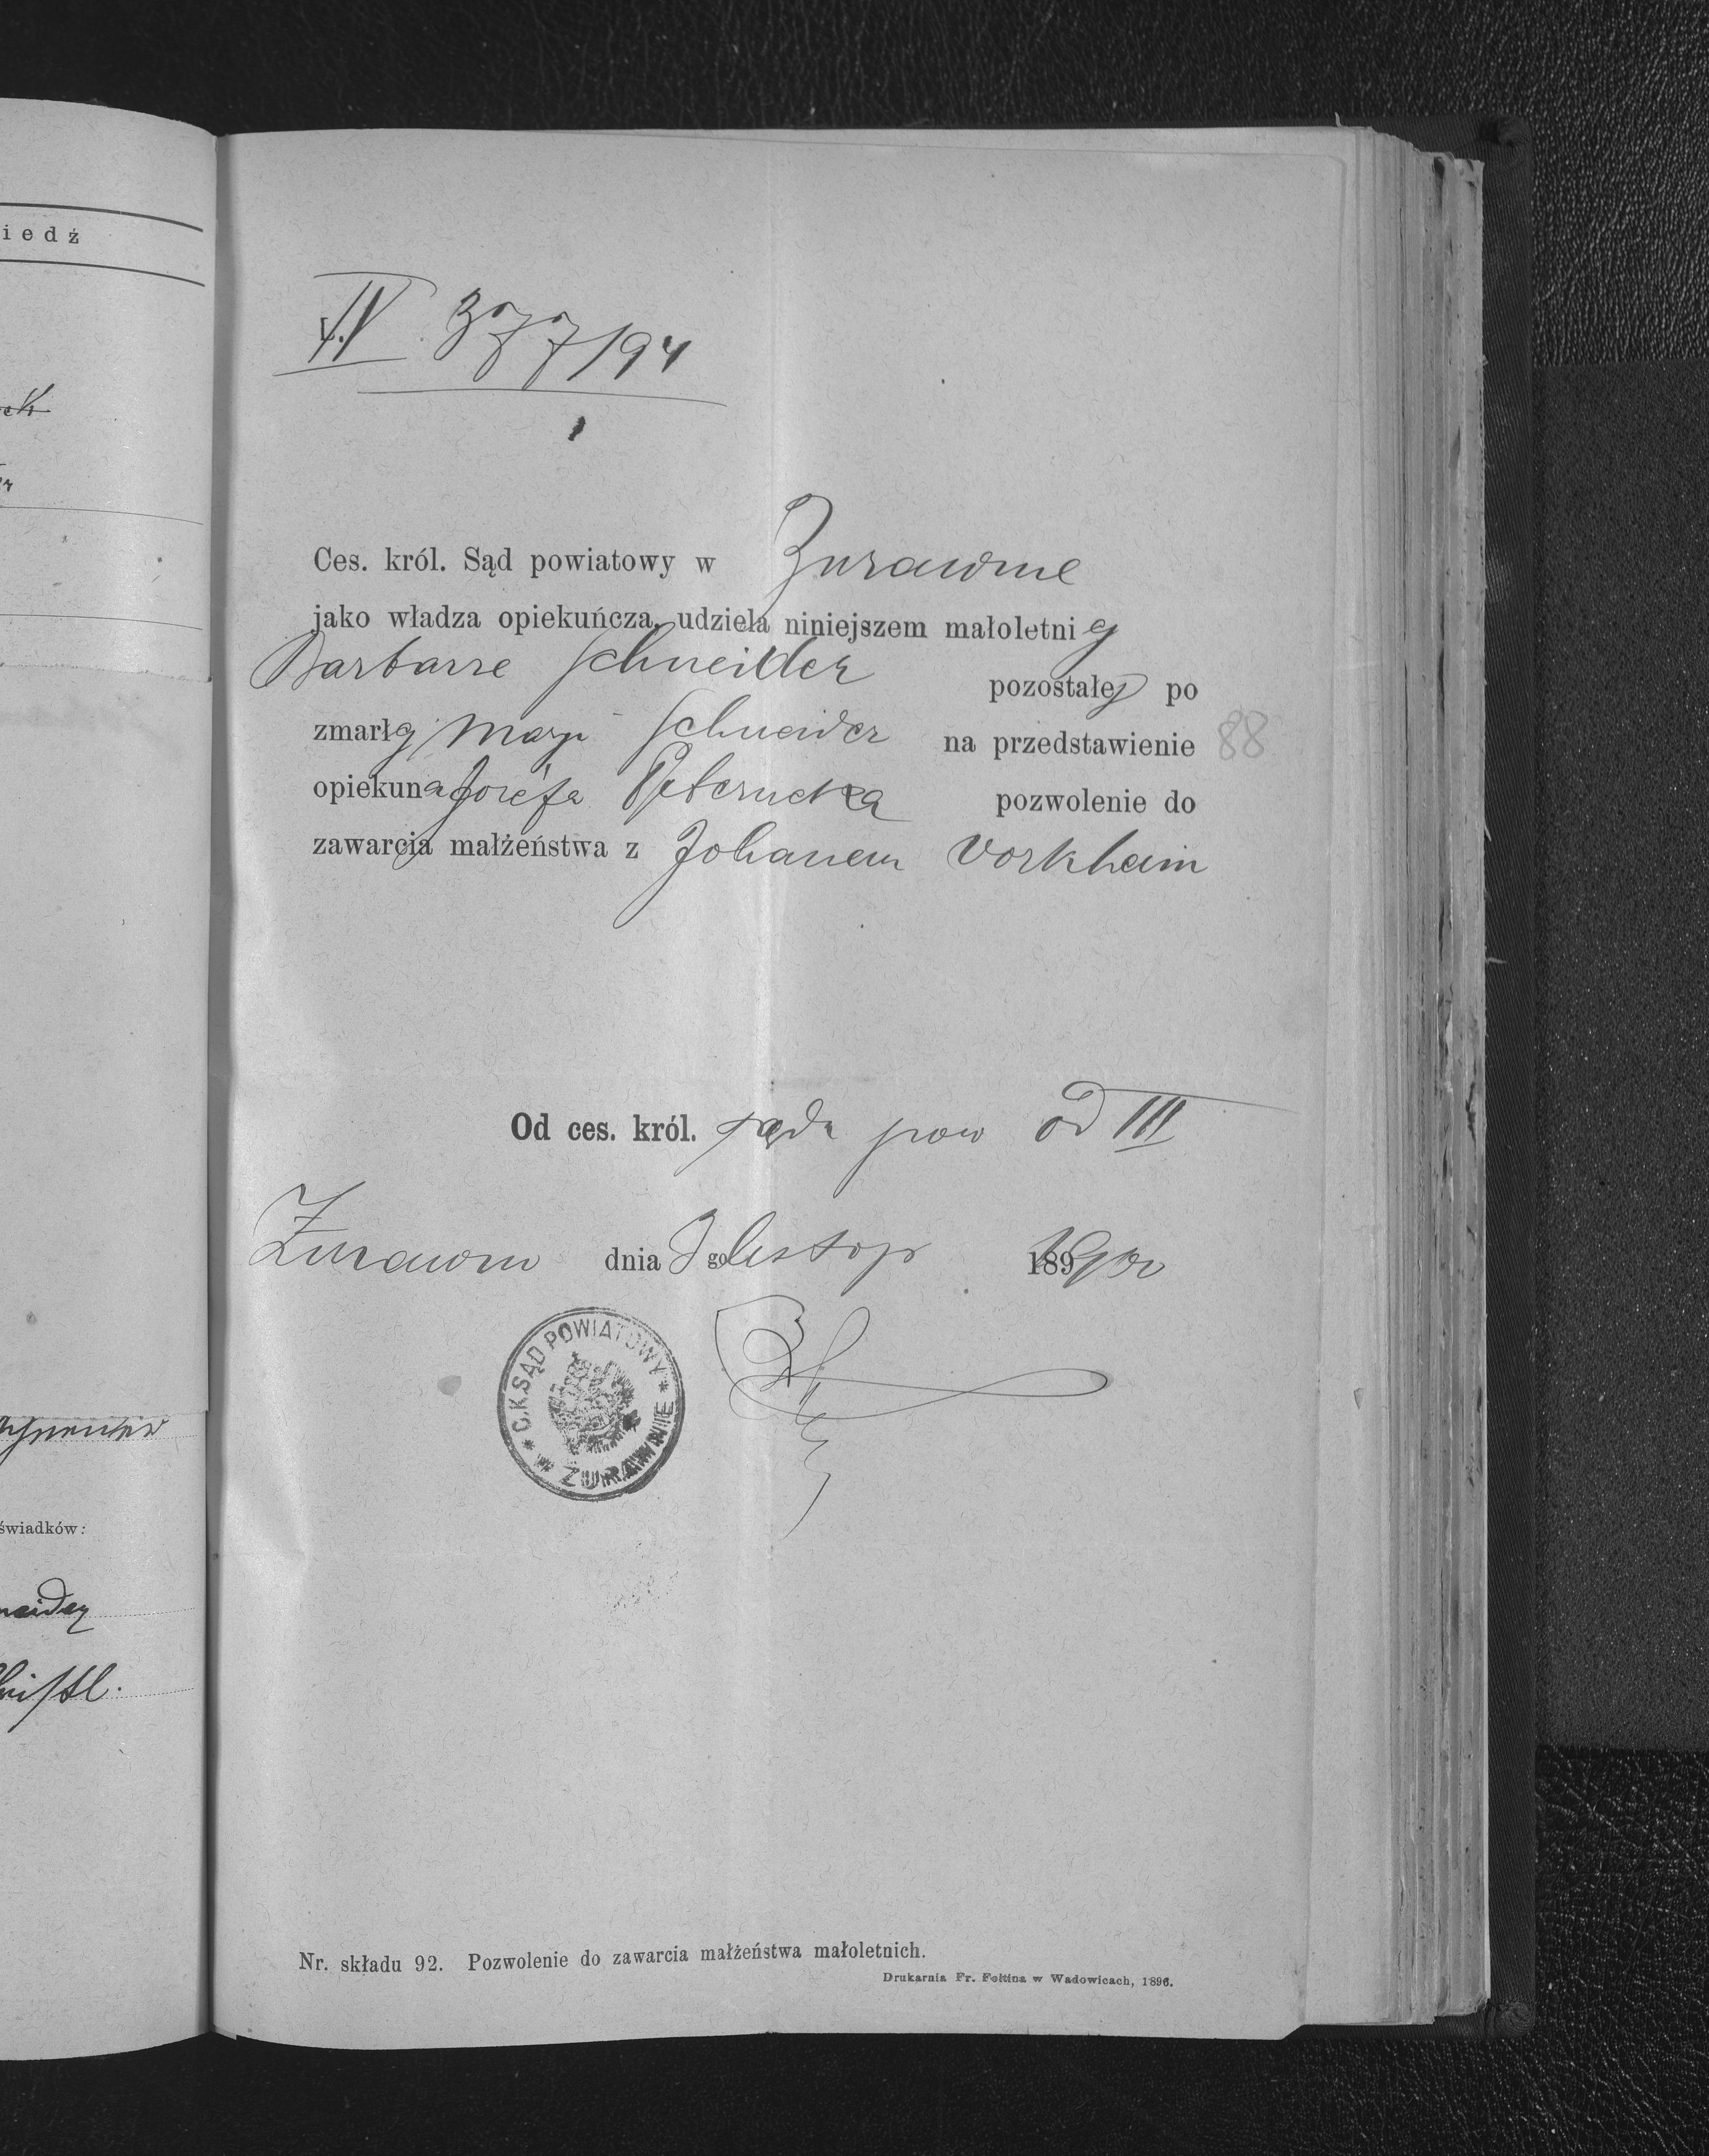 iedź
IV. 377/94
1
Ces. król. Sąd powiatowy w Żurawnie
jako władza opiekuńcza, udziela niniejszem małoletniej
Barbarze Schneider pozostałej po
zmarłej Maryi Schneider na przedstawienie 88
opiekuna Józefa pozwolenie do
zawarcia małżeństwa z Johanem Vorkheim
Od ces. król. sądu pow Od III
Żurawno dnia go listop 1900
C.K. SĄD POWIATOWY
ŻURAWNIE
świadków:
Nr. składu 92. Pozwolenie do zawarcia małżeństwa małoletnich.
Drukarnia Fr. Foltina w Wadowicach, 1896.